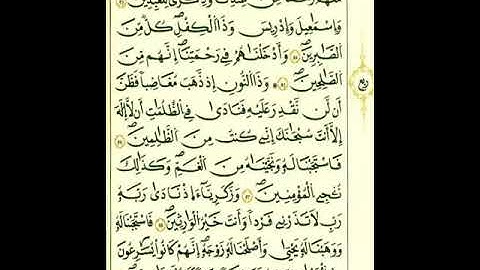 وَإِسْمَاعِيلَ وَإِدْرِيسَ وَذَا الْكِفْلِ كُلٌّ مِّنَ
الصَّابِرِينَ وَأَدْخَلْنَاهُمْ فِي رَحْمَتِنَا إِنَّهُم مِّنَ
الصَّالِحِينَ وَذَا النُّونِ إِذ ذَّهَبَ مُغَاضِبًا فَظَنَّ
أَن لَّن نَّقْدِرَ عَلَيْهِ فَنَادَىٰ فِي الظُّلُمَاتِ أَن لَّا إِلَٰهَ
إِلَّا أَنتَ سُبْحَانَكَ إِنِّي كُنتُ مِنَ الظَّالِمِينَ
فَاسْتَجَبْنَا لَهُ وَنَجَّيْنَاهُ مِنَ الْغَمِّ وَكَذَٰلِكَ
نُنجِي الْمُؤْمِنِينَ وَزَكَرِيَّاءَ إِذْ نَادَىٰ رَبَّهُ
رَبِّ لَا تَذَرْنِي فَرْدًا وَأَنتَ خَيْرُ الْوَارِثِينَ فَاسْتَجَبْنَا لَهُ
وَوَهَبْنَا لَهُ يَحْيَىٰ وَأَصْلَحْنَا لَهُ زَوْجَهُ إِنَّهُمْ كَانُوا يُسَارِعُونَ
ربع